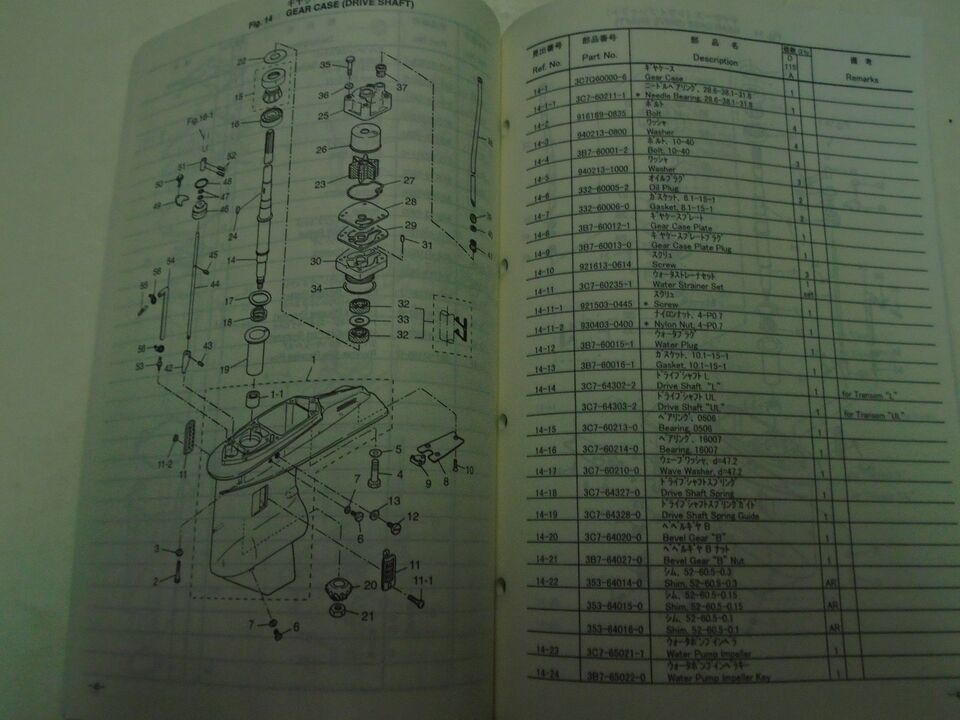 Fig. 14
GEAR CASE (DRIVE SHAFT)
見出番号
Ref. No.
部品番号
Part No.
部 品 名
Description
D
115
A
備 考
Remarks
ギヤケース
14-1 3C7Q60000-6 Gear Case 1
ニードルベアリング, 28.6-38.1-31.8
14-1-1 3C7-60211-1 * Needle Bearing, 28.6-38.1-31.8 1
ボルト
14-2 916189-0835 Bolt
ワッシャ
14-3 940213-0800 Washer 4
ボルト, 10-40
14-4 3B7-60001-2 Bolt, 10-40
ワッシャ
14-5 940213-1000 Washer
オイルプラグ
14-6 332-60005-2 Oil Plug
ガスケット, 8.1-15-1
14-7 332-60006-0 Gasket, 8.1-15-1
ギヤケースプレート
14-8 3B7-60012-1 Gear Case Plate
ギヤケースプレートプラグ
14-9 3B7-60013-0 Gear Case Plate Plug
スクリュ
14-10 921613-0614 Screw
ウォータストレーナセット
14-11 3C7-60235-1 Water Strainer Set
スクリュ
14-11-1 921503-0445 * Screw
ナイロンナット, 4-P0.7
14-11-2 930403-0400 * Nylon Nut, 4-P0.7
ウォータプラグ
14-12 3B7-60015-1 Water Plug
ガスケット, 10.1-15-1
14-13 3B7-60016-1 Gasket, 10.1-15-1 1
ドライブシャフト L
14-14 3C7-64302-2 Drive Shaft "L" 1 for Transom "L"
ドライブシャフト UL
3C7-64303-2 Drive Shaft "UL" 1 for Transom "UL"
ベアリング, 0506
14-15 3C7-60213-0 Bearing, 0506 1
ベアリング, 16007
14-16 3C7-60214-0 Bearing, 16007 1
ウェーブワッシャ, d=47.2
14-17 3C7-60210-0 Wave Washer, d=47.2 1
ドライブシャフトスプリング
14-18 3C7-64327-0 Drive Shaft Spring 1
ドライブシャフトスプリングガイド
14-19 3C7-64328-0 Drive Shaft Spring Guide 1
ベベルギヤ B
14-20 3C7-64020-0 Bevel Gear "B" 1
ベベルギヤ B ナット
14-21 3B7-64027-0 Bevel Gear "B" Nut 1
シム, 52-60.5-0.3
14-22 353-64014-0 Shim, 52-60.5-0.3 AR
シム, 52-60.5-0.15
353-64015-0 Shim, 52-60.5-0.15 AR
シム, 52-60.5-0.1
353-64016-0 Shim, 52-60.5-0.1 AR
ウォータポンプインペラ
14-23 3C7-65021-1 Water Pump Impeller 1
ウォータポンプインペラキー
14-24 3B7-65022-0 Water Pump Impeller Key 1
35
36
25
37
26
23
27
28
29
31
30
34
32
33
32
15
16
24
14
17
18
19
45
44
43
42
53
1
1-1
11-2
11
5
4
10
9
8
7
13
12
6
3
2
20
21
11
11-1
7
6